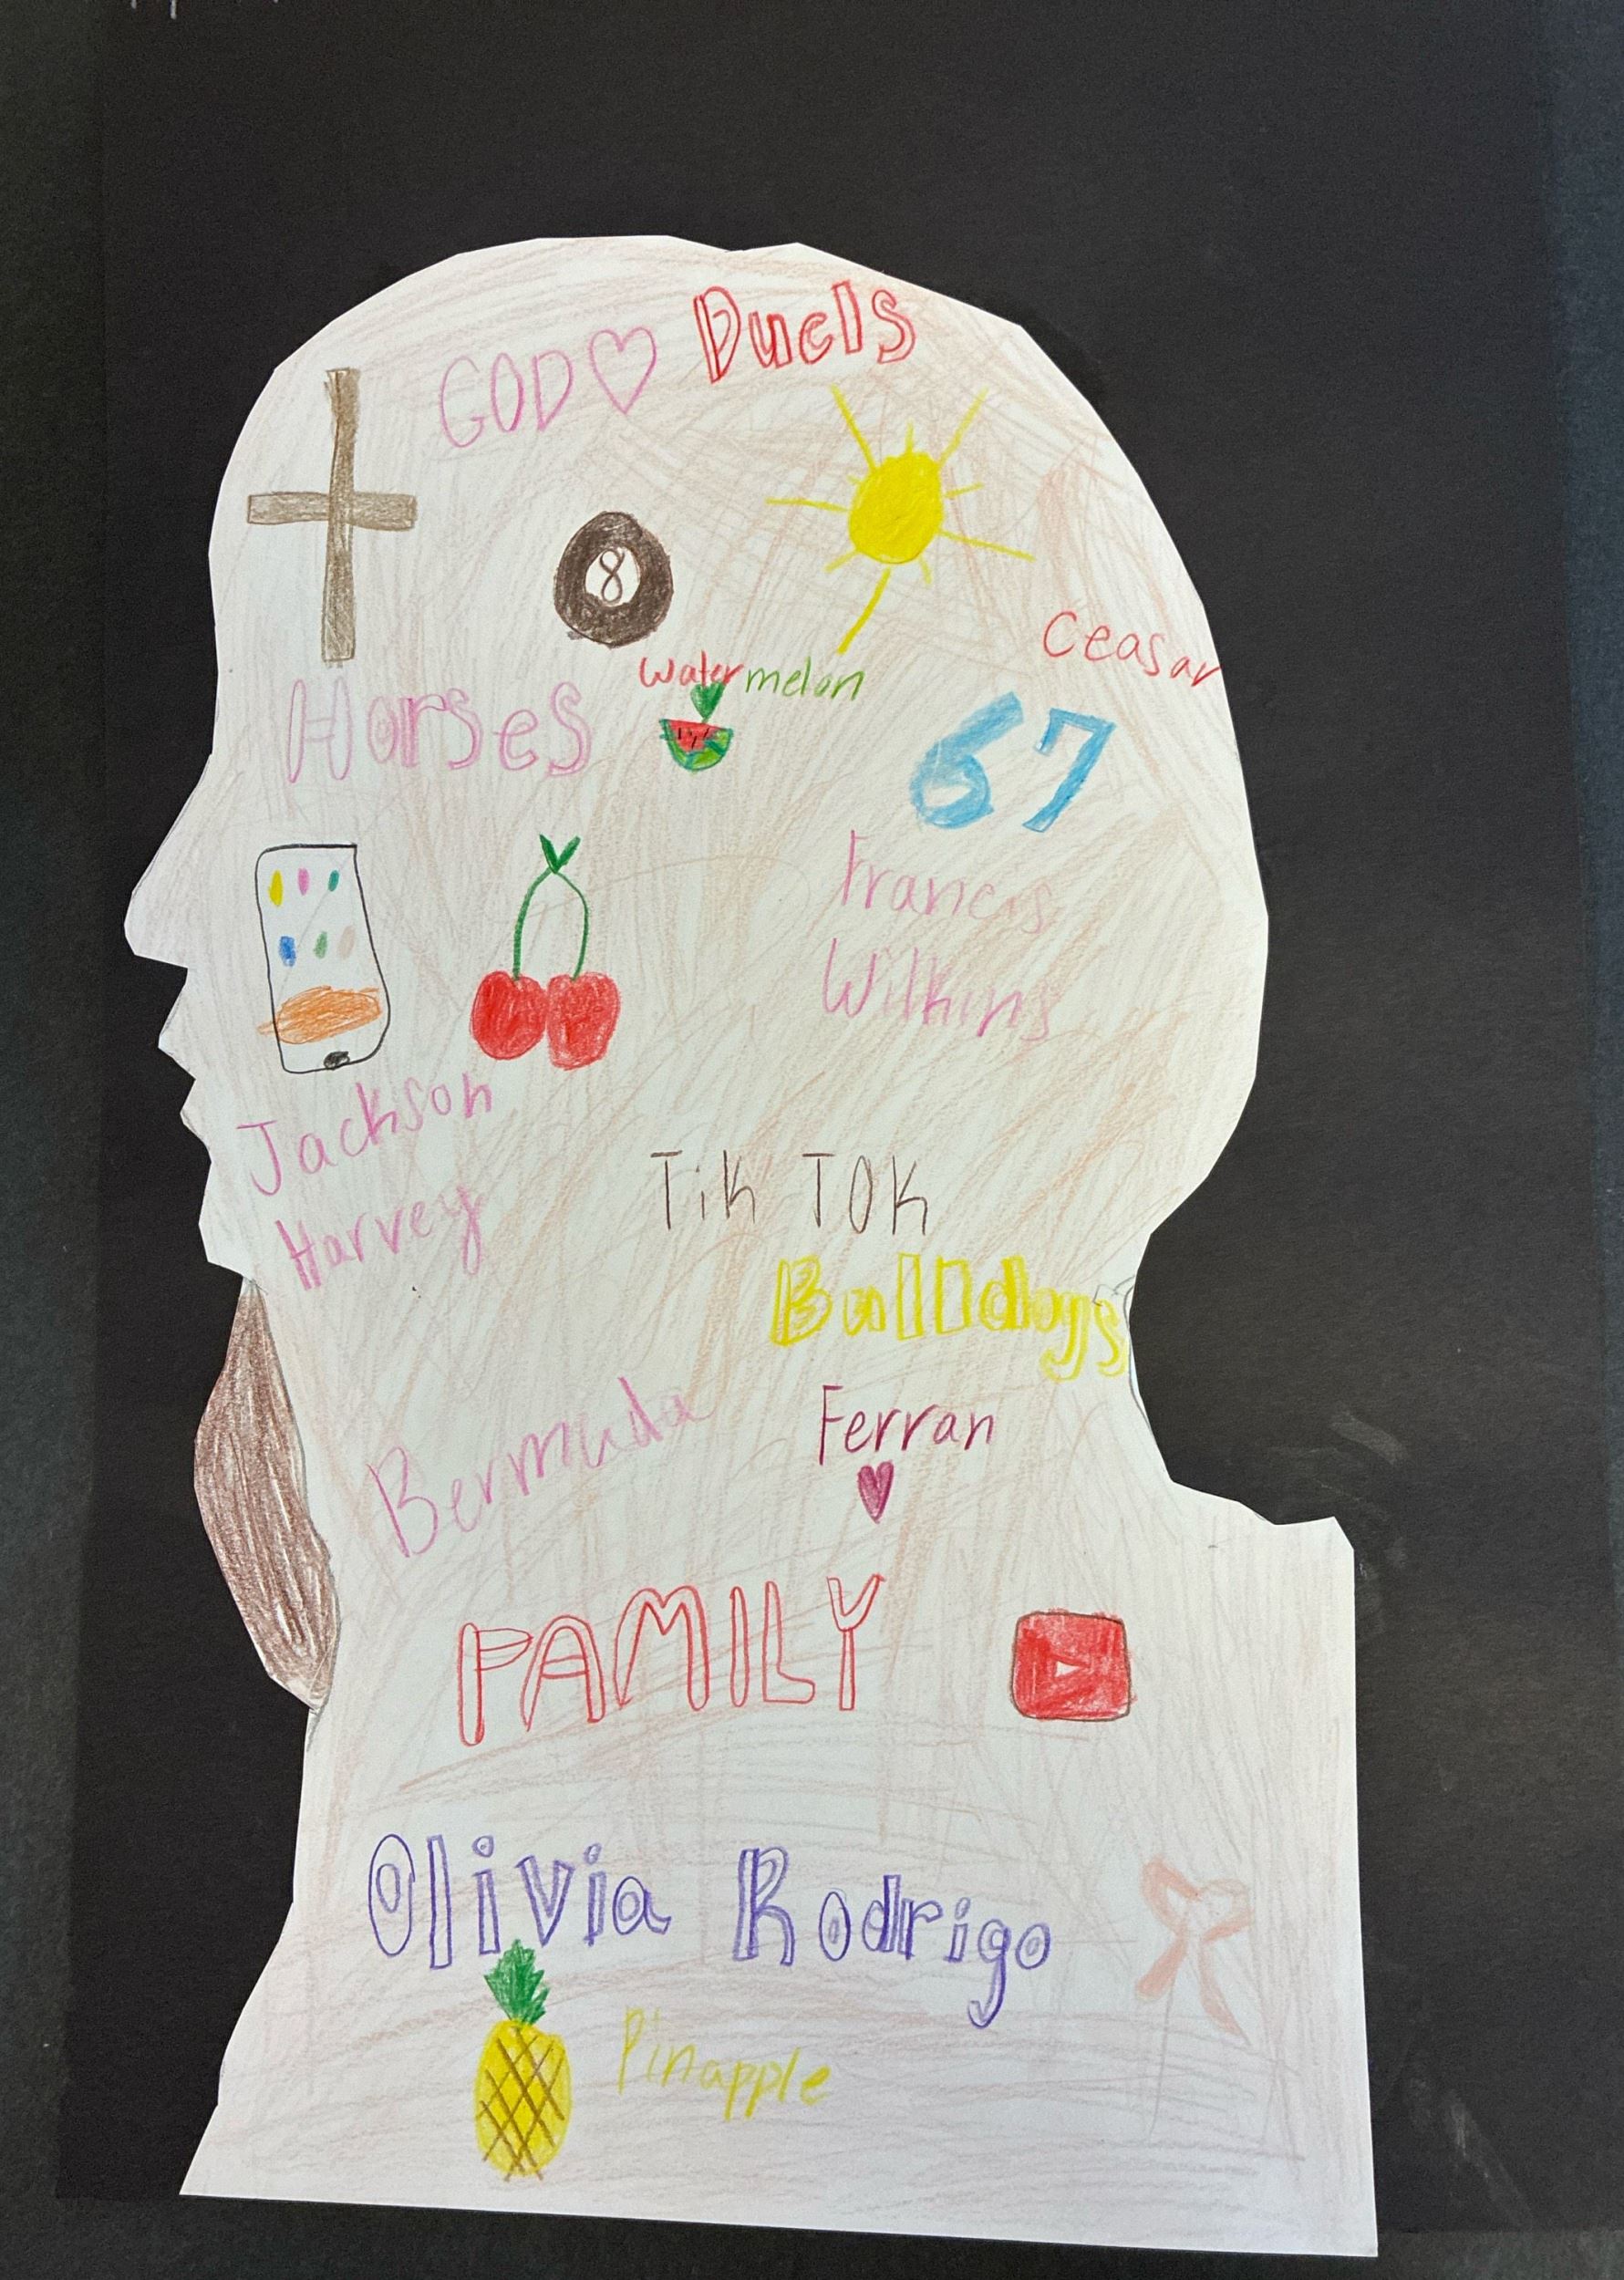 GOD
Ducls
8
Ceasar
Watermelon
Horses
67
Francis
Wilkins
Jackson
Harvey
Tik TOK
Bulldogs
Bermuda
Ferran
FAMILY
Olivia Rodrigo
Pinapple